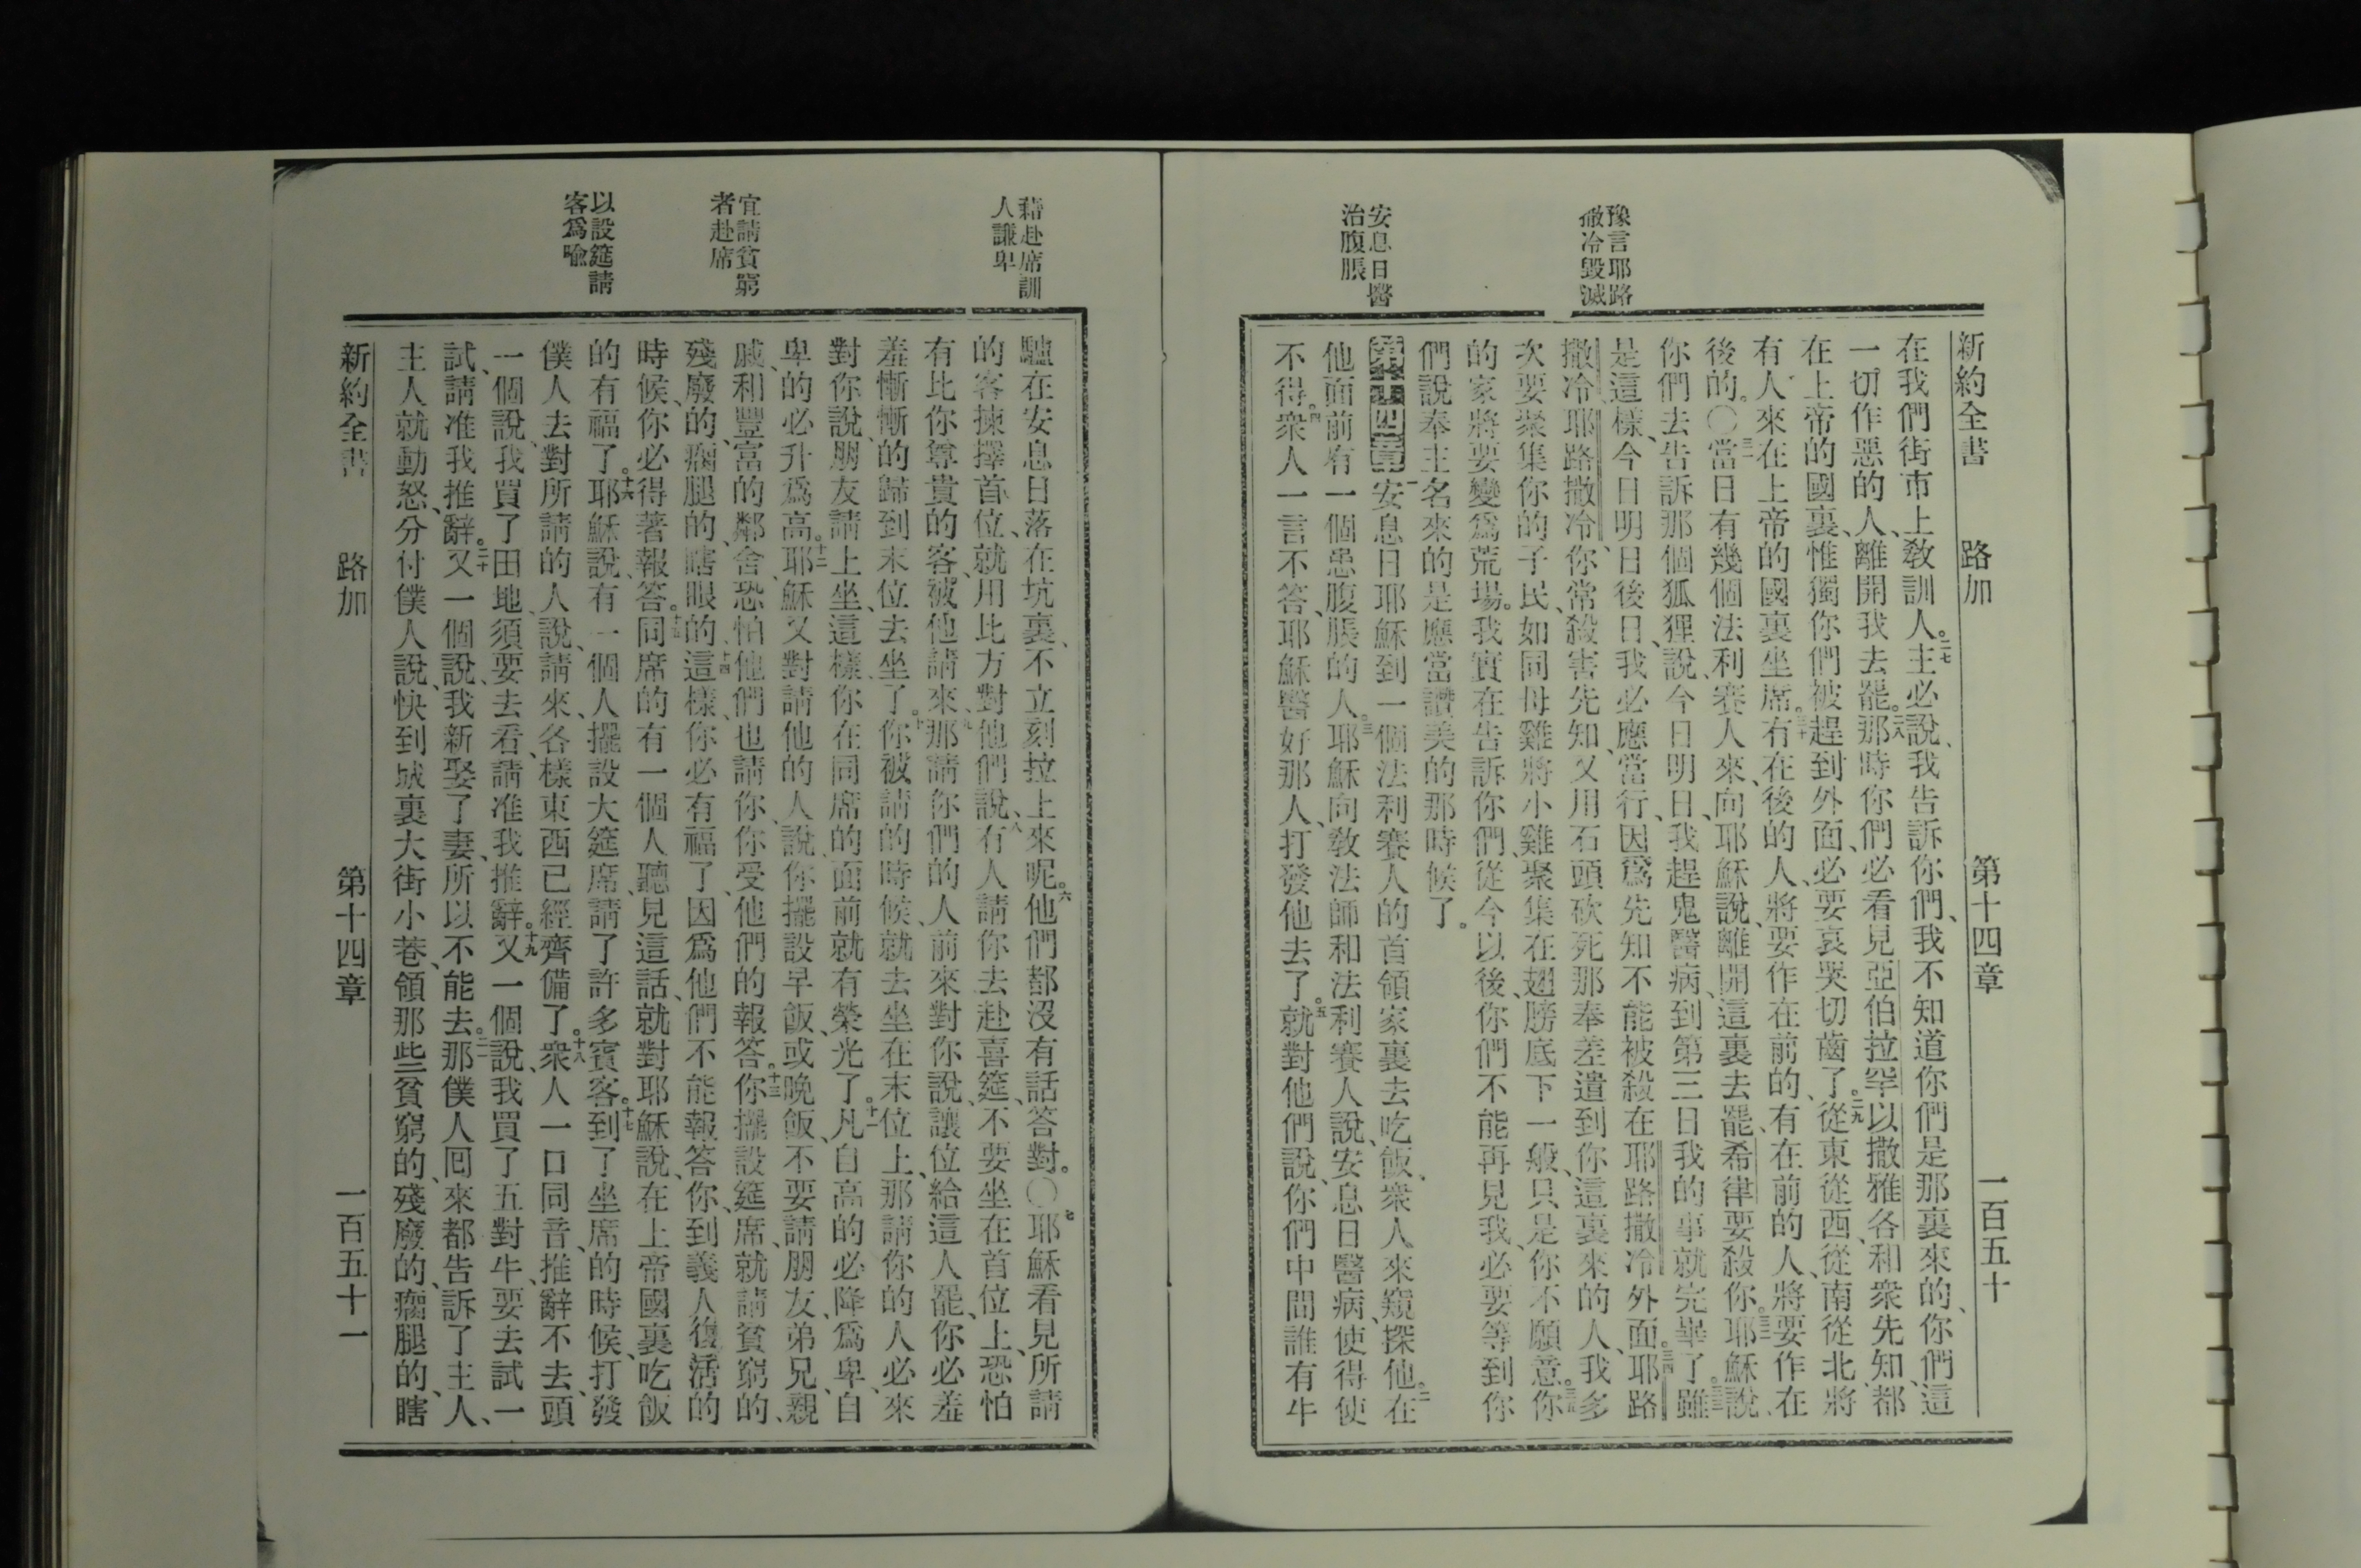 新約全書 路加 第十四章 一百五十
豫言耶路
撒冷毀滅
安息日醫
治腹脹
在我們街市上敎訓人。二七主必說、我告訴你們、我不知道你們是那裏來的、你們這
一切作惡的人、離開我去罷。二八那時你們必看見亞伯拉罕以撒雅各和衆先知、都
在上帝的國裏、惟獨你們被趕到外面、必要哀哭切齒了。二九從東從西、從南從北、將
有人來在上帝的國裏坐席。三十有在後的人、將要作在前的、有在前的人、將要作在
後的。〇三一當日有幾個法利賽人來、向耶穌說、離開這裏去罷、希律要殺你。三二耶穌說、
你們去告訴那個狐狸、說、今日明日、我趕鬼醫病、到第三日我的事就完畢了。三三雖
是這樣、今日明日後日、我必應當行、因爲先知不能被殺在耶路撒冷外面。三四耶路
撒冷耶路撒冷、你常殺害先知、又用石頭砍死那奉差遣到你這裏來的人、我多
次要聚集你的子民、如同母雞將小雞聚集在翅膀底下一般、只是你不願意。三五你
的家將要變爲荒場。我實在告訴你們、從今以後、你們不能再見我、必要等到你
們說奉主名來的是應當讚美的那時候了。
第十四章 一安息日耶穌到一個法利賽人的首領家裏去吃飯、衆人來窺探他。二在
他面前有一個患腹脹的人。三耶穌向敎法師和法利賽人說、安息日醫病、使得使
不得。四衆人一言不答、耶穌醫好那人、打發他去了。五就對他們說、你們中間誰有牛
藉赴席訓
人謙卑
宜請貧窮
者赴席
以設筵請
客爲喩
驢在安息日落在坑裏、不立刻拉上來呢。六他們都沒有話答對。〇七耶穌看見所請
的客揀擇首位、就用比方對他們說、八有人請你去赴喜筵、不要坐在首位上、恐怕
有比你尊貴的客、被他請來、九那請你們的人前來對你說、讓位給這人罷、你必羞
羞慚慚的歸到末位去坐了。十你被請的時候、就去坐在末位上、那請你的人必來
對你說、朋友請上坐、這樣、你在同席的面前就有榮光了。十一凡自高的必降爲卑、自
卑的必升爲高。十二耶穌又對請他的人說、你擺設早飯、或晚飯、不要請朋友、弟兄、親
戚、和豐富的鄰舍、恐怕他們也請你、你受他們的報答。十三你擺設筵席、就請貧窮的、
殘廢的、瘸腿的、瞎眼的、十四這樣、你必有福了、因爲他們不能報答你、到義人復活的
時候、你必得著報答。十五同席的有一個人聽見這話、就對耶穌說、在上帝國裏吃飯
的有福了。十六耶穌說、有一個人擺設大筵席、請了許多賓客。十七到了坐席的時候、打發
僕人去對所請的人說、請來、各樣東西已經齊備了。十八衆人一口同音、推辭不去、頭
一個說、我買了田地、須要去看、請准我推辭。十九又一個說、我買了五對牛、要去試一
試、請准我推辭。二十又一個說、我新娶了妻、所以不能去。二一那僕人囘來都告訴了主人、
主人就動怒、分付僕人說、快到城裏大街小巷、領那些貧窮的、殘廢的、瘸腿的、瞎
新約全書 路加 第十四章 一百五十一